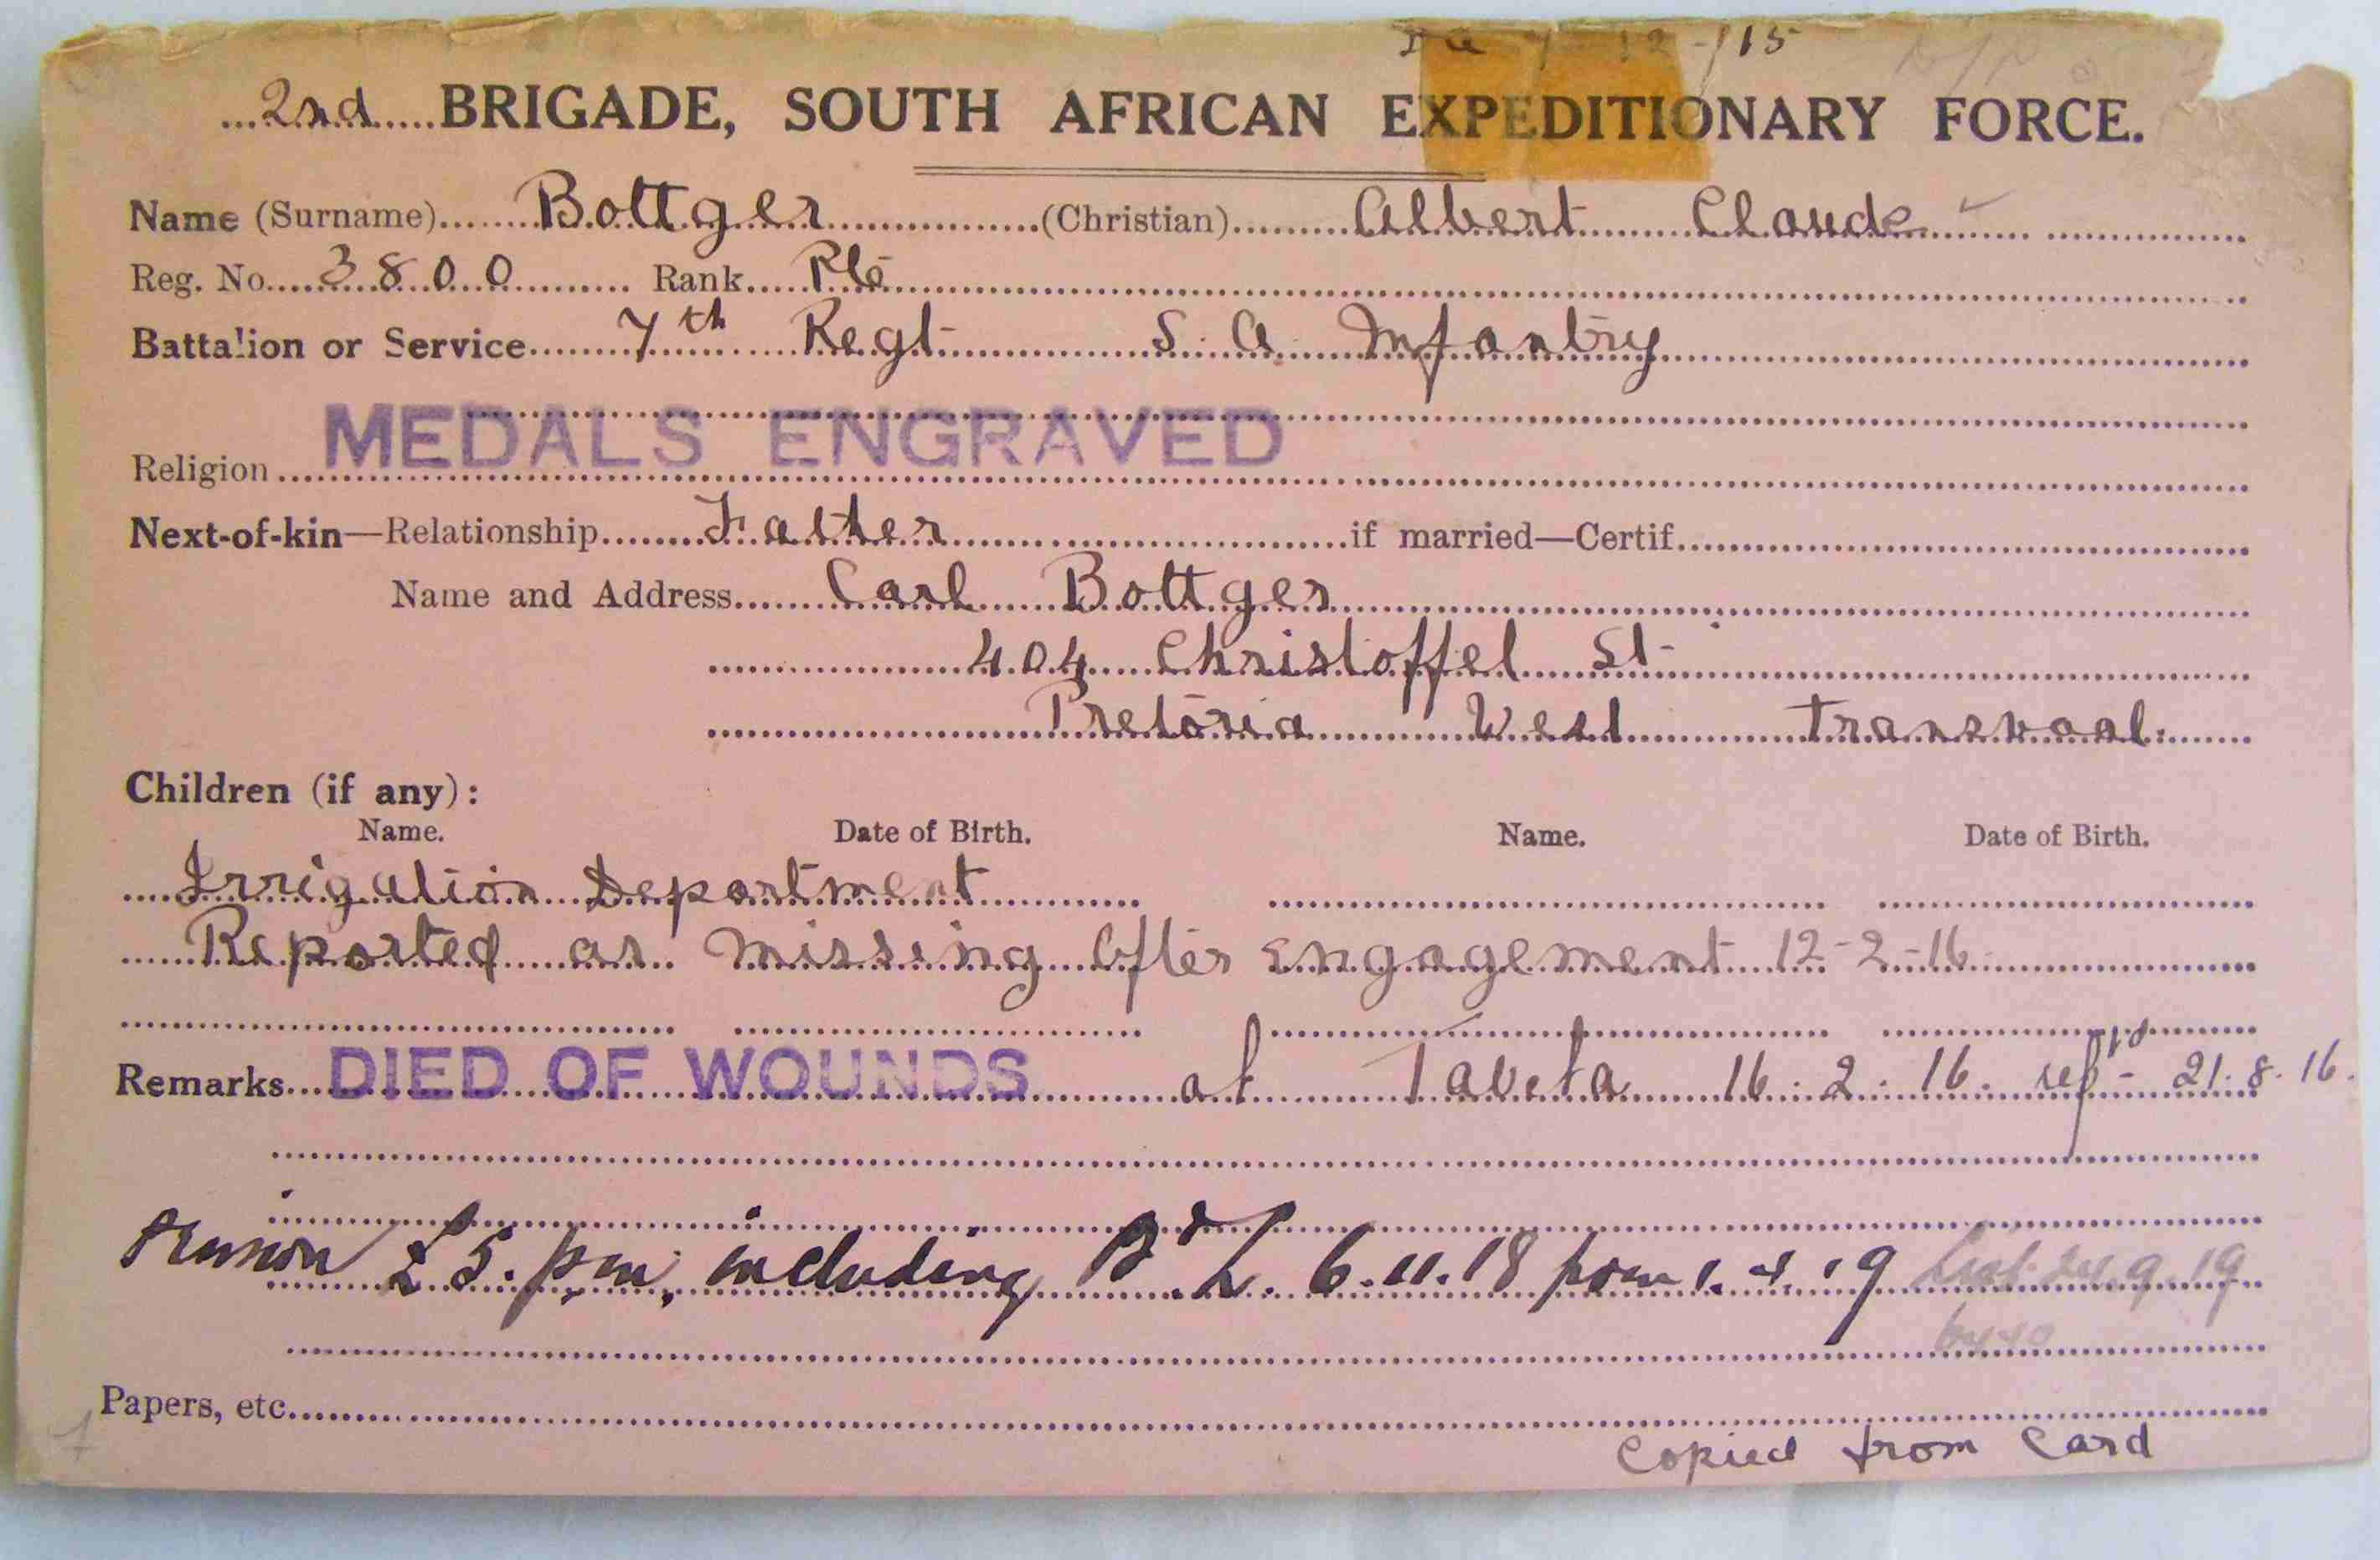 12-/15
2nd BRIGADE, SOUTH AFRICAN EXPEDITIONARY FORCE.
Name (Surname) Bottger (Christian) Albert Claude
Reg. No. 3800 Rank Pte
Battalion or Service 7th Regt S. A. Infantry
MEDALS ENGRAVED
Religion
Next-of-kin—Relationship Father if married—Certif.
Name and Address Carl Bottger
404 Christoffel St
Pretoria West Transvaal.
Children (if any):
Name. Date of Birth. Name. Date of Birth.
Irrigation Department
Reported as missing after engagement 12-2-16
Remarks DIED OF WOUNDS at Taveta 16.2.16. 21.8.16.
Pension £5. p.m, including 6.11.18 from 9.19
Papers, etc.
Copied from Card